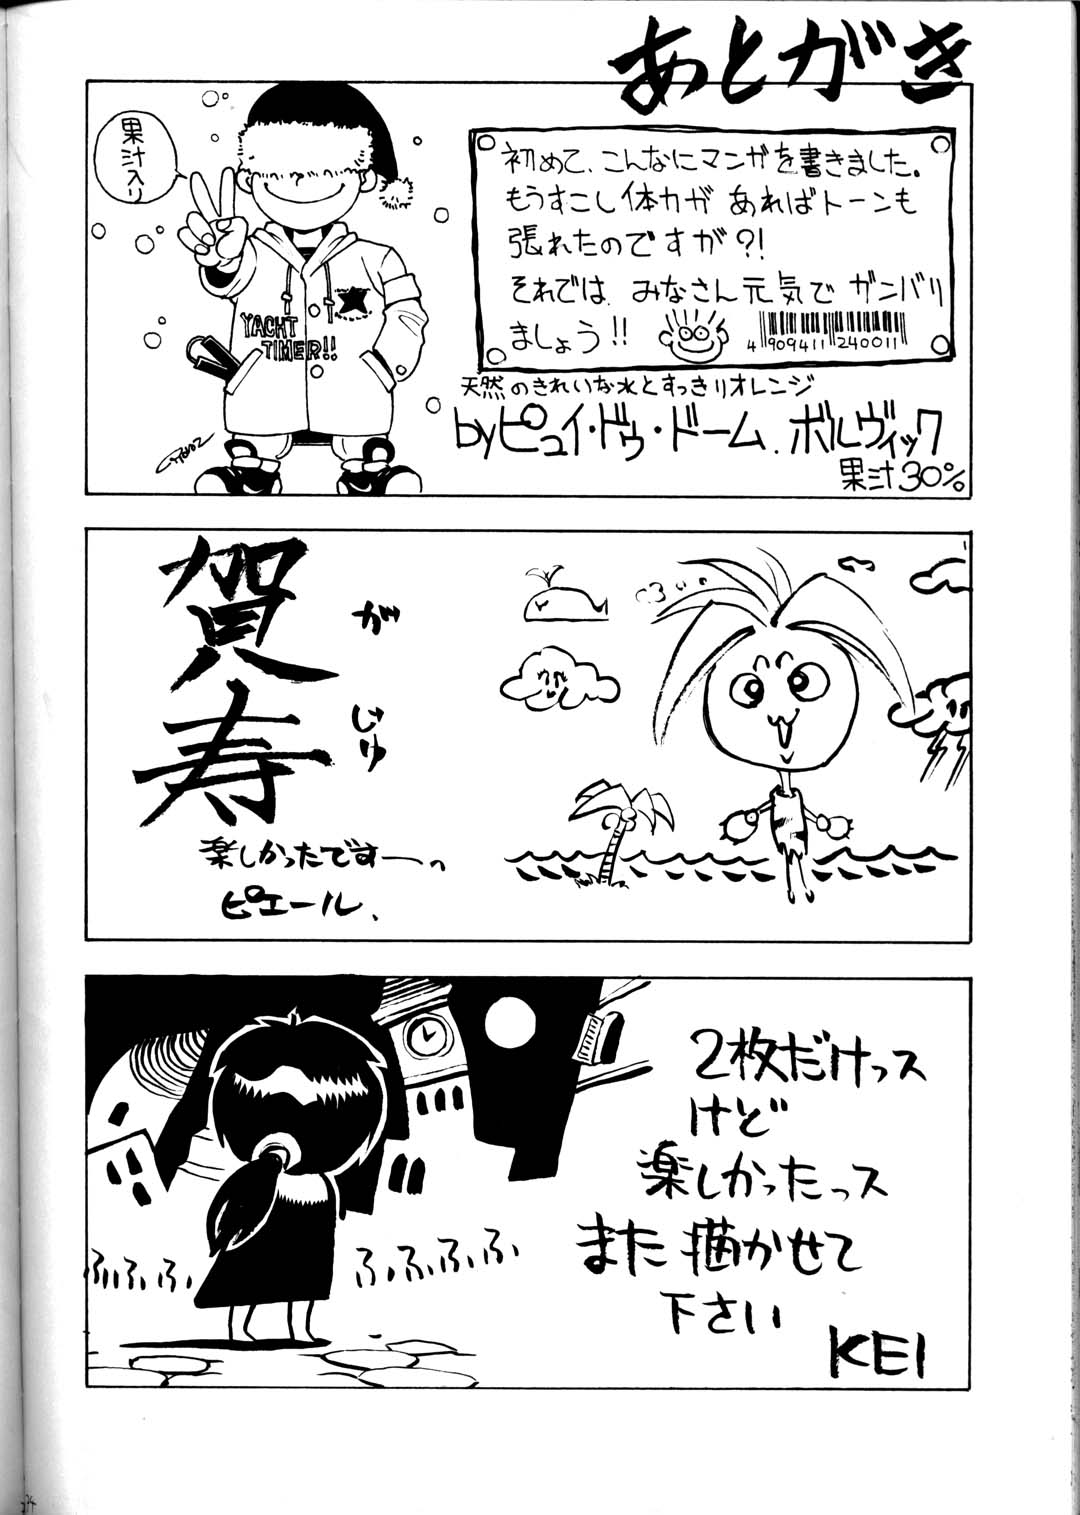 あとがき
果汁入り
初めて、こんなにマンガを書きました。
もうすこし体力が あればトーンも
張れたのですが?!
それでは、みなさん元気で ガンバリ
ましょう!!
4 909411 240011
YACHT
TIMER!!
天然のきれいな水とすっきりオレンジ
byピュイ・ドゥ・ドーム.ボルヴィック
果汁30%
賀寿
がじゅ
楽しかったですー。
ピエール、
2枚だけっス
けど
楽しかったっス
また描かせて
下さい
KEI
ふふふふ
ふふふふふ